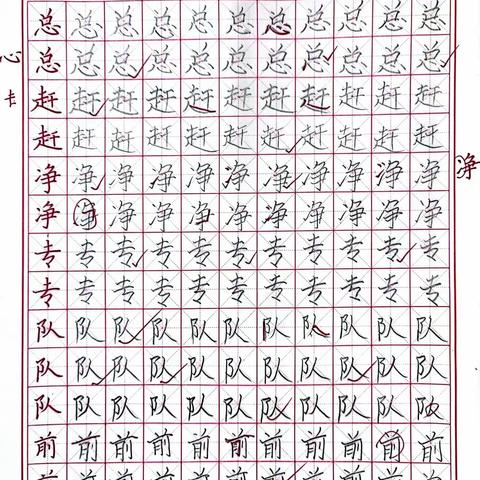 总总总总总总总总总总总
心总总总总总总总总总总总
卡赶赶赶赶赶赶赶赶赶赶赶
赶赶赶赶赶赶赶赶赶赶赶
净净净净净净净净净净净净
净净净净净净净净净净净
专专专专专专专专专专专
专专专专专专专专专专专
队队队队队队队队队队队
队队队队队队队队队队队
队队队队队队队队队队队
前前前前前前前前前前前